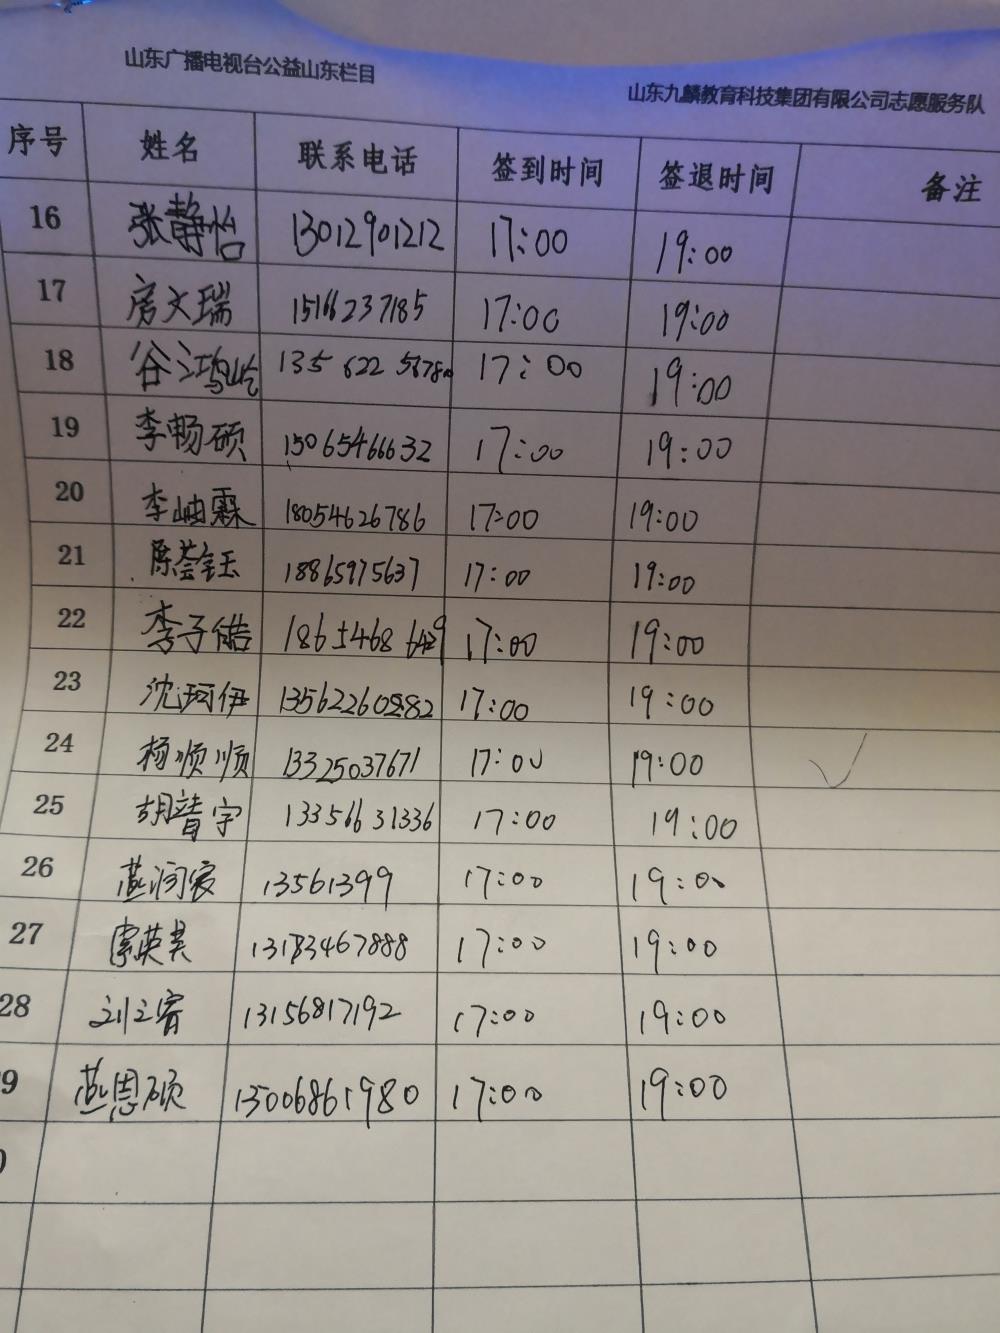 山东广播电视台公益山东栏目
山东九麟教育科技集团有限公司志愿服务队
序号 姓名 联系电话 签到时间 签退时间 备注
16 张静怡 13012901212 17:00 19:00
17 房文瑞 15166237185 17:00 19:00
18 谷江鸿屹 135 622 17:00 19:00
19 李畅硕 15065466632 17:00 19:00
20 李岫霖 18054626786 17:00 19:00
21 陈莹钰 18865975637 17:00 19:00
22 李子皓 1865468 17:00 19:00
23 沈珂伊 17:00 19:00
24 杨顺顺 13325037671 17:00 19:00 ✓
25 胡誩宇 13356631336 17:00 19:00
26 燕润宸 13561399 17:00 19:00
27 索英昊 13183467888 17:00 19:00
28 刘之睿 13156817192 17:00 19:00
9 燕恩硕 13006861980 17:00 19:00